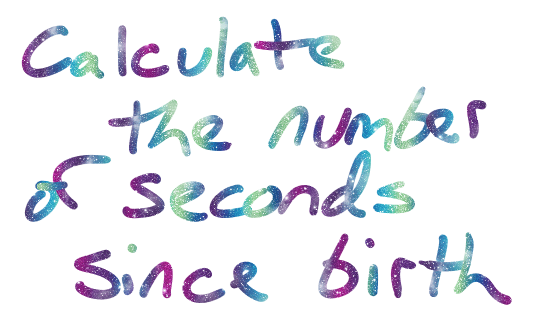 Calculate
the number
of seconds
since birth